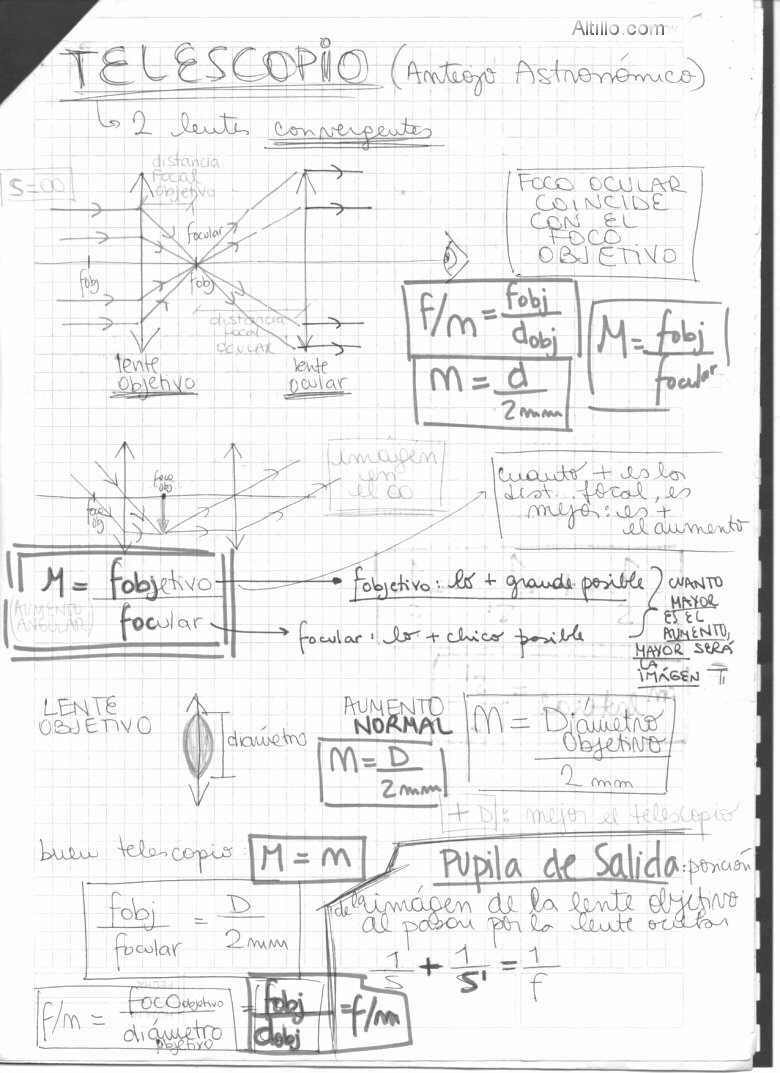 Altillo.com
TELESCOPIO (Anteojo Astronómico)
2 lentes convergentes
S=∞
distancia
focal
objetivo
focular
fobj
fobj
distancia
focal
OCULAR
lente
objetivo
lente
ocular
FOCO OCULAR
COINCIDE
CON EL
FOCO
OBJETIVO
f/m = fobj / dobj
M = fobj / focular
m = d / 2mm
imágen
en
el ∞
foco
obj
foco
obj
cuanto + es la
dist... focal, es
mejor: es +
el aumento
M = fobjetivo / focular
(AUMENTO
ANGULAR)
fobjetivo: lo + grande posible
focular: lo + chico posible
CUANTO
MAYOR
ES EL
AUMENTO,
MAYOR SERÁ
LA
IMÁGEN
LENTE
OBJETIVO
diámetro
AUMENTO
NORMAL
m = D / 2mm
m = Diámetro Objetivo / 2 mm
+ D: mejor el telescopio
buen telescopio: M = m
fobj / focular = D / 2mm
Pupila de Salida: posición
de la imágen de la lente objetivo
al pasar por la lente ocular
1/S + 1/S' = 1/f
f/m = foco objetivo / diámetro objetivo = fobj / dobj = f/m